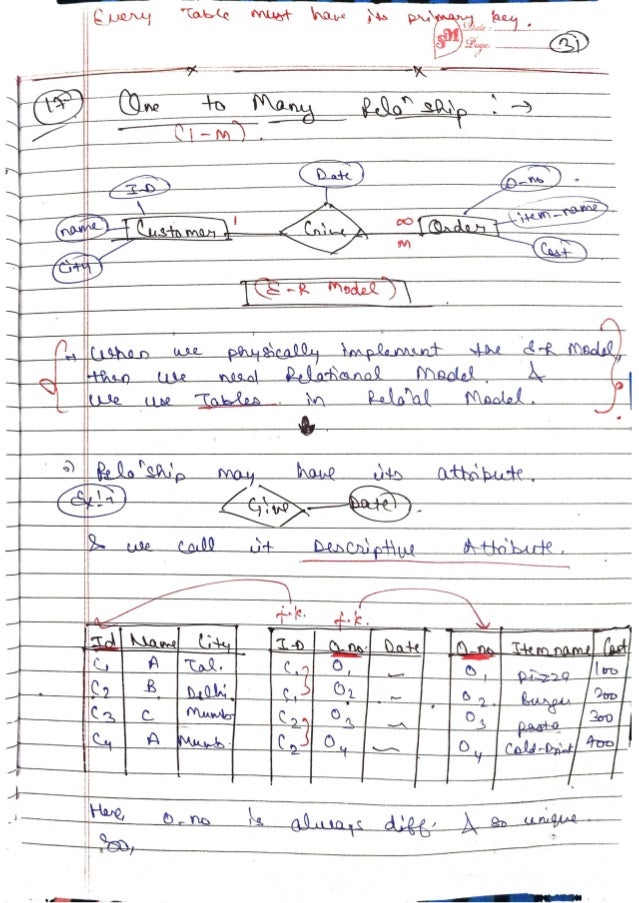 Every Table must have its primary key.
SM Date:
Page:
31
17
One to Many Relaⁿship : →
(1-M).
Date
I-D
O-no
name
Customer
1
Give
∞
M
Order
item-name
City
Cost
(E-R Model)
→ When we physically implement the E-R Model,
then we need Relational Model. &
we use Tables in Rela'al Model.
Relaⁿship may have its attribute.
Ex:→
Give
Date
& we call it Descriptive Attribute.
f.k. f.k.
Id Name City I-D O-no. Date O-no Item name Cost
C1 A Jal. C1 O1 ~ O1 pizza 100
C2 B Delhi C1 O2 ~ O2 Burger 200
C3 C Mumb C2 O3 ~ O3 pasta 300
C4 A Mumb. C2 O4 ~ O4 Cold-Drink 400
Here, O-no is always diff. & so unique.
Soo,